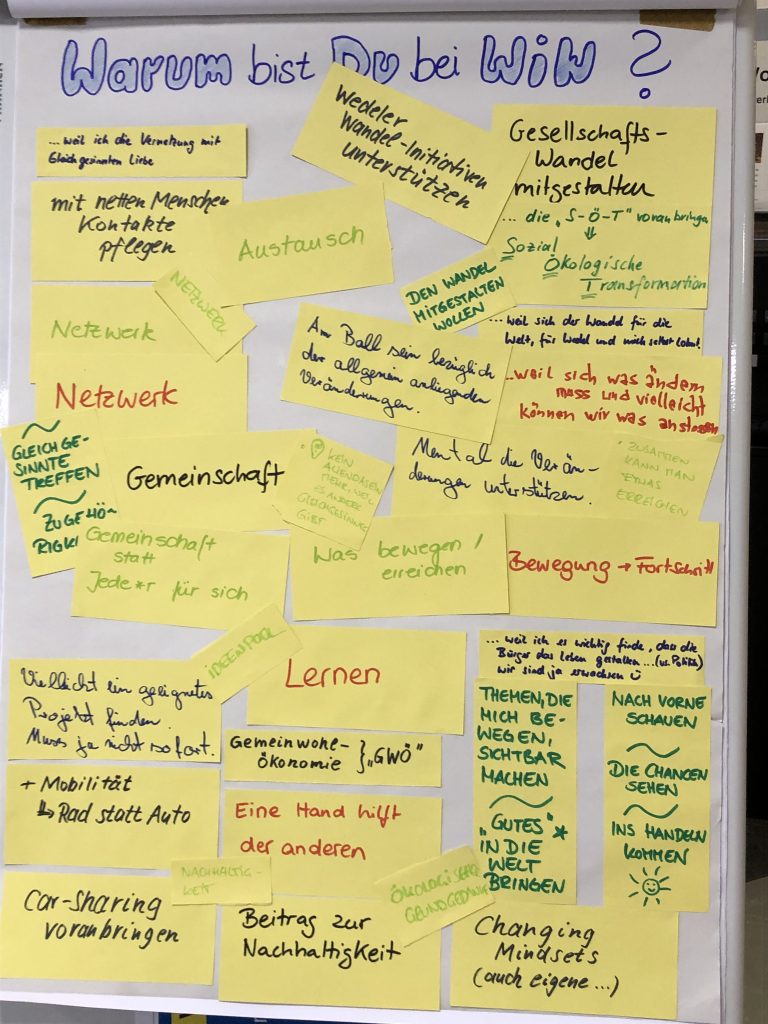 Warum bist Du bei WiW ?
Wedeler
Wandel-Initiativen
unterstützen
Gesellschafts-
Wandel
mitgestalten
... die „S-Ö-T" voranbringen
⇓
Sozial
Ökologische
Transformation
... weil ich die Vernetzung mit
Gleichgesinnten Liebe
mit netten Menschen
Kontakte
pflegen
Austausch
NETZWERK
DEN WANDEL
MITGESTALTEN
WOLLEN
Netzwerk
Am Ball sein bezüglich
der allgemein anliegenden
Veränderungen.
... weil sich der Wandel für die
Welt, für Wedel und mich selbst lohnt.
Netzwerk
...weil sich was ändern
muss und vielleicht
können wir was anstossen
GLEICHGE-
SINNTE
TREFFEN
ZUGEHÖ-
RIGK
Gemeinschaft
KEIN
ALIENDASEIN
MEHR, WEIL
ES ANDERE
GLEICHGESINNTE
GIBT
Mental die Verän-
derungen unterstützen.
ZUSAMMEN
KANN MAN
ETWAS
ERREICHEN
Gemeinschaft
statt
Jede*r für sich
Was bewegen /
erreichen
Bewegung → Fortschritt
IDEENPOOL
Lernen
... weil ich es wichtig finde, dass die
Bürger das Leben gestalten...(vs. Politik)
wir sind ja erwachsen
Vielleicht ein geeignetes
Projekt finden.
Muss ja nicht sofort.
Gemeinwohl-
ökonomie } „GWÖ"
THEMEN, DIE
MICH BE-
WEGEN,
SICHTBAR
MACHEN
„GUTES" *
IN DIE
WELT
BRINGEN
NACH VORNE
SCHAUEN
DIE CHANCEN
SEHEN
INS HANDELN
KOMMEN
+ Mobilität
↳ Rad statt Auto
Eine Hand hilft
der anderen
NACHHALTIG-
KEIT
ÖKOLOGISCHER
GRUNDGEDANKE
Car-sharing
voranbringen
Beitrag zur
Nachhaltigkeit
Changing
Mindsets
(auch eigene ...)